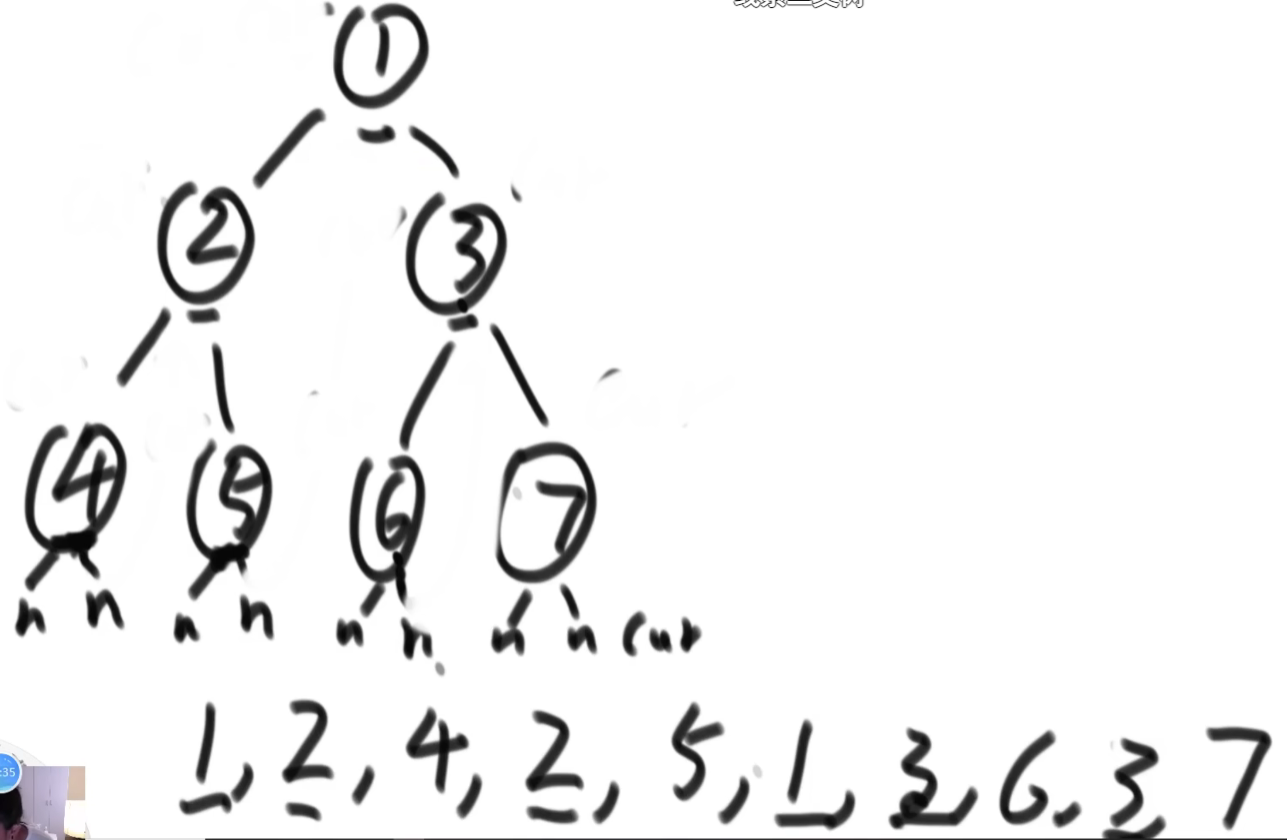 1
2 3
4 5 6 7
n n n n n n n n cur
1, 2, 4, 2, 5, 1, 3, 6, 3, 7
:35